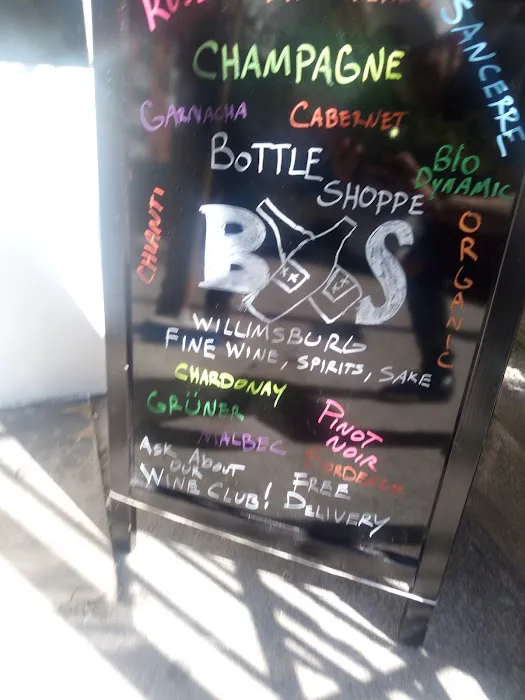 SANCERRE
CHAMPAGNE
GARNACHA
CABERNET
BOTTLE
SHOPPE
BIO
DYNAMIC
CHIANTI
B S
ORGANIC
WILLIMSBURG
FINE WINE, SPIRITS, SAKE
CHARDONAY
GRÜNER
PINOT
NOIR
MALBEC
ASK ABOUT
OUR
WINE CLUB!
FREE
DELIVERY